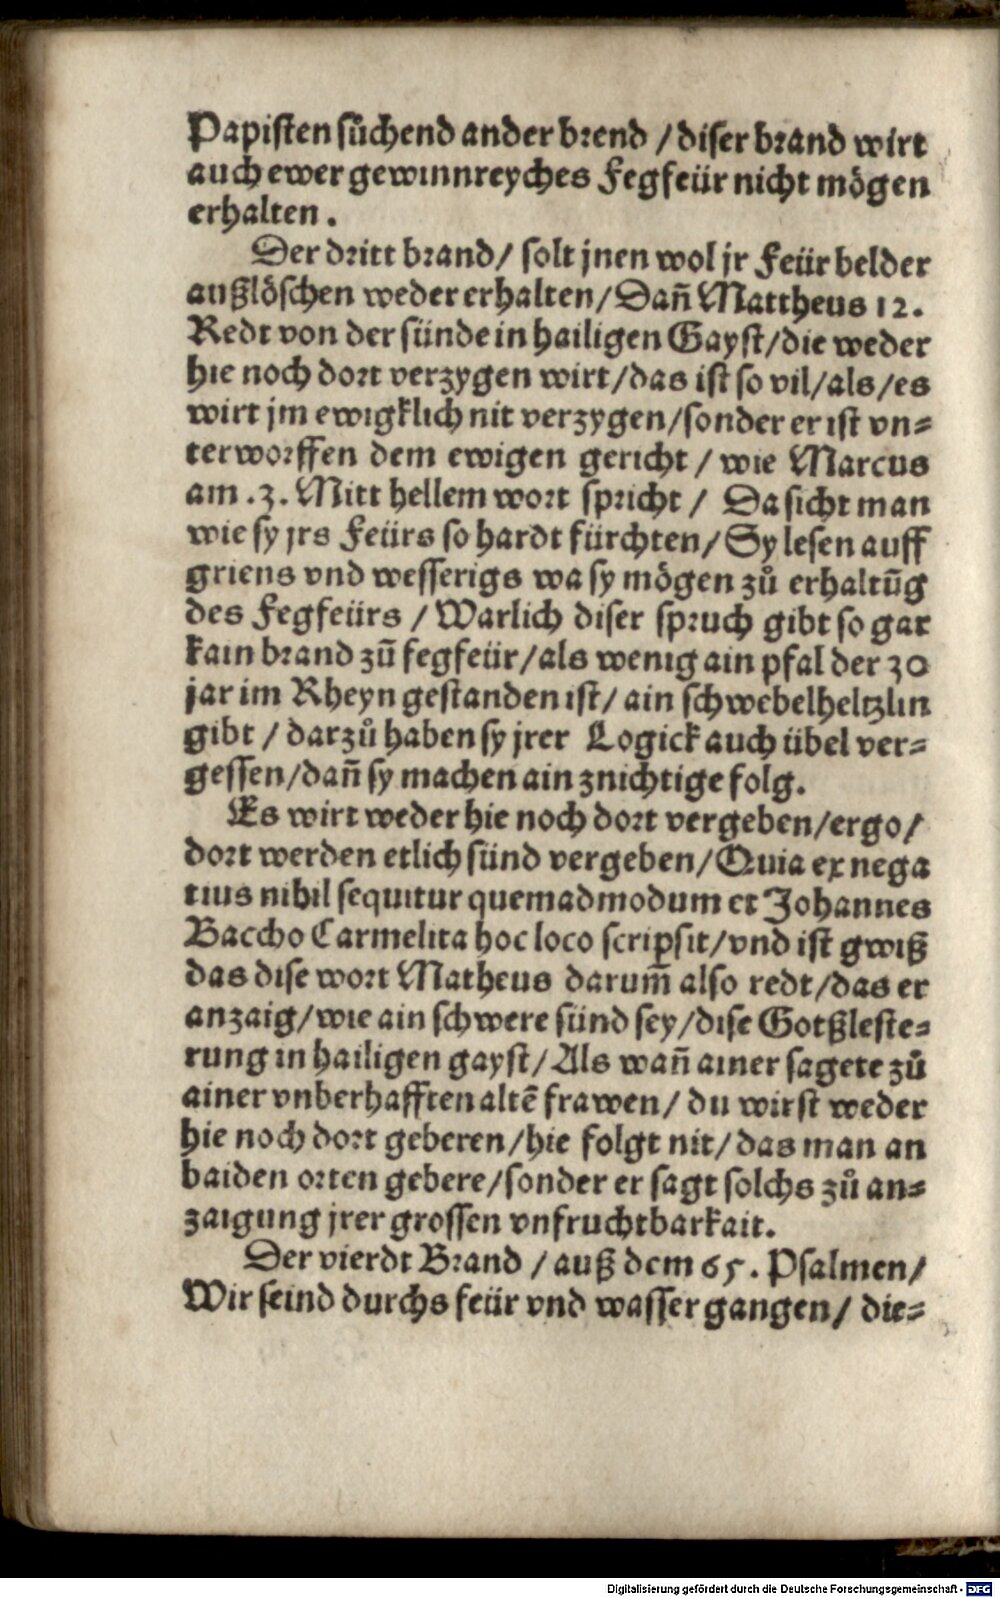 Papisten sůchend ander brend / diser brand wirt
auch ewer gewinnreyches Fegfeür nicht mögen
erhalten .
Der dritt brand / solt jnen wol jr Feür belder
außlöschen weder erhalten / Dañ Mattheus 12.
Redt von der sünde in hailigen Gayst / die weder
hie noch dort verzygen wirt / das ist so vil / als / es
wirt jm ewigklich nit verzygen / sonder er ist vn⸗
terworffen dem ewigen gericht / wie Marcus
am .3. Mitt hellem wort spricht / Da sicht man
wie sy jrs Feürs so hardt fürchten / Sy lesen auff
griens vnd wesserigs wa sy mögen zů erhaltũg
des Fegfeürs / Warlich diser spruch gibt so gar
kain brand zũ fegfeür / als wenig ain pfal der 30
jar im Rheyn gestanden ist / ain schwebelheltzlin
gibt / darzů haben sy jrer Logick auch übel ver⸗
gessen / dañ sy machen ain znichtige folg.
Es wirt weder hie noch dort vergeben / ergo /
dort werden etlich sünd vergeben / Quia ex nega
tius nihil sequitur quemadmodum et Johannes
Baccho Carmelita hoc loco scripsit / vnd ist gwiß
das dise wort Matheus darum̃ also redt / das er
anzaig / wie ain schwere sünd sey / dise Gotßleste⸗
rung in hailigen gayst / Als wañ ainer sagete zů
ainer vnberhafften altẽ frawen / du wirst weder
hie noch dort geberen / hie folgt nit / das man an
baiden orten gebere / sonder er sagt solchs zů an⸗
zaigung jrer grossen vnfruchtbarkait.
Der vierdt Brand / auß dem 65. Psalmen /
Wir seind durchs feür vnd wasser gangen / die⸗
Digitalisierung gefördert durch die Deutsche Forschungsgemeinschaft - DFG